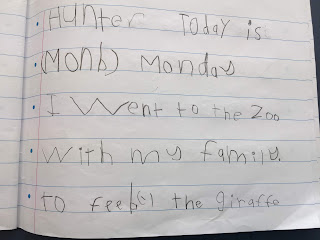 Hunter Today is
(Monb) Monday
I Went to the Zoo
With my family.
to feeb() the giraffe